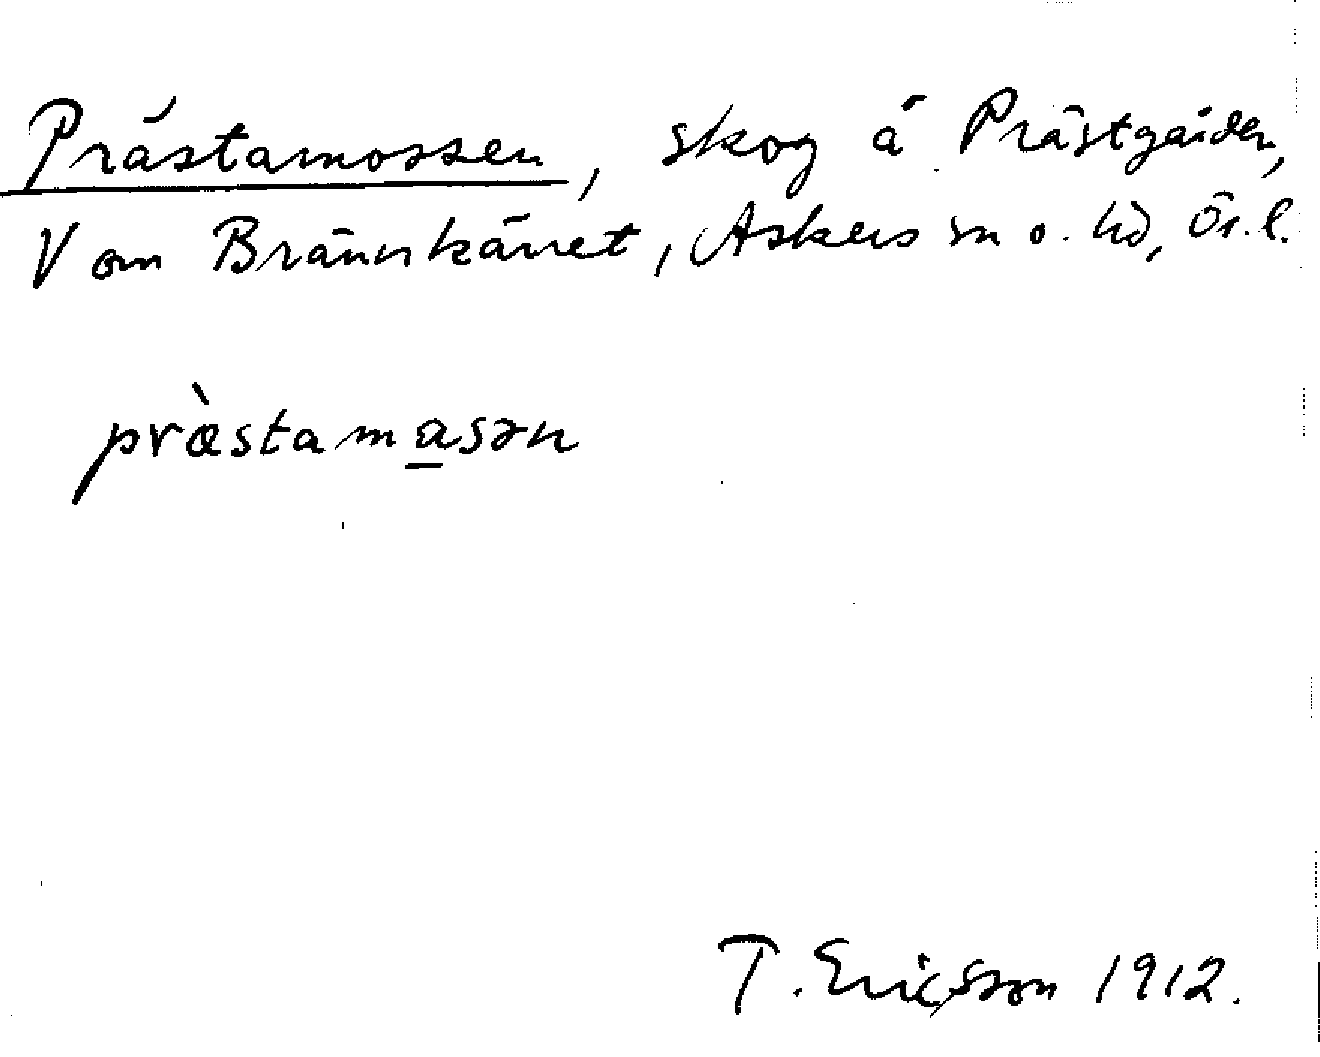 Prästamossen, skog å Prästgården,
V om Brännkärret, Askers sn o. hd, Ör. l.
pràstamasən
T. Ericsson 1912.